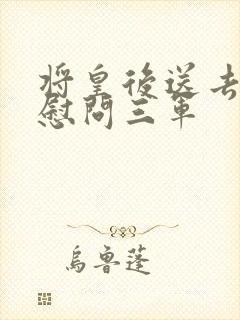 将皇後送去
慰問三軍
烏魯蓬